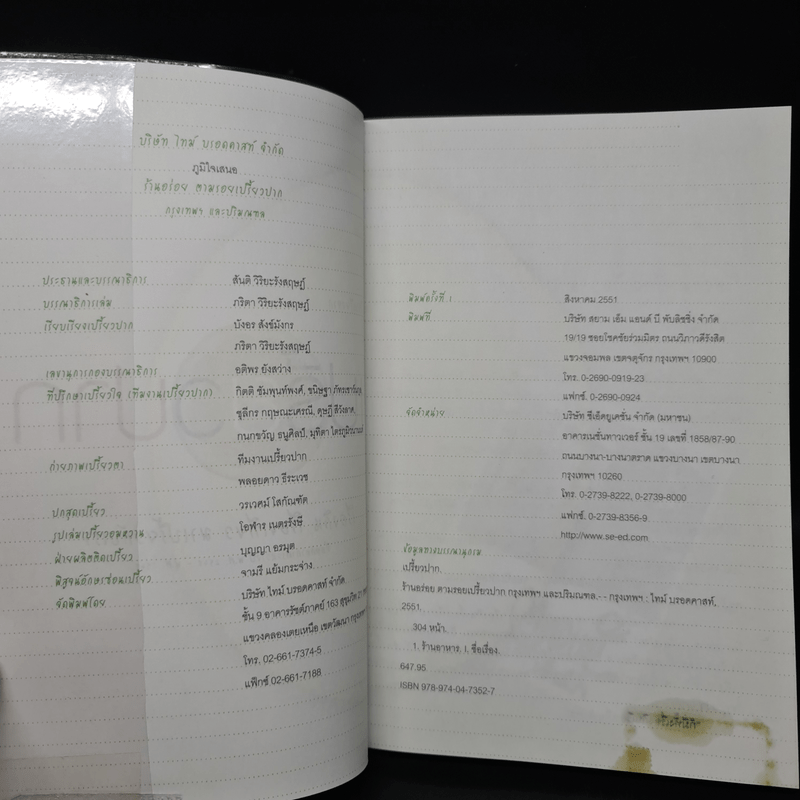 บริษัท ไทม์ บรอดคาสท์ จำกัด
ภูมิใจเสนอ
ร้านอร่อย ตามรอยเปรี้ยวปาก
กรุงเทพฯ และปริมณฑล
ประธานและบรรณาธิการ สันติ วิริยะรังสฤษฎ์
บรรณาธิการเล่ม ภริตา วิริยะรังสฤษฎ์
เรียบเรียงเปรี้ยวปาก บังอร สังข์มังกร
ภริตา วิริยะรังสฤษฎ์
เลขานุการกองบรรณาธิการ อติพร ยังสว่าง
ที่ปรึกษาเปรี้ยวใจ (ทีมงานเปรี้ยวปาก) กิตติ ชัมพุนท์พงศ์, ชนิษฐา
ชุลีกร กฤษณะเศรณี, ดุษฎี
กนกขวัญ ธนูศิลป์, มุทิตา
ถ่ายภาพเปรี้ยวตา ทีมงานเปรี้ยวปาก
พลอยดาว ธีระเวช
ปกสุดเปรี้ยว วรเวศม์ โสภัณฑัต
รูปเล่มเปรี้ยวอมหวาน โอฬาร เนตรรังษี
ฝ่ายผลิตติดเปรี้ยว บุญญา อรมุต
พิสูจน์อักษรซ่อนเปรี้ยว จามรี แย้มกระจ่าง
จัดพิมพ์โดย บริษัท ไทม์ บรอดคาสท์ จำกัด
ชั้น 9 อาคารรัชต์ภาคย์ 163 สุขุมวิท 21
แขวงคลองเตยเหนือ เขตวัฒนา
โทร. 02-661-7374-5
แฟ็กซ์ 02-661-7188
พิมพ์ครั้งที่ 1 สิงหาคม 2551
พิมพ์ที่ บริษัท สยาม เอ็ม แอนด์ บี พับลิชชิ่ง จำกัด
19/19 ซอยโชคชัยร่วมมิตร ถนนวิภาวดีรังสิต
แขวงจอมพล เขตจตุจักร กรุงเทพฯ 10900
โทร. 0-2690-0919-23
แฟกซ์. 0-2690-0924
จัดจำหน่าย บริษัท ซีเอ็ดยูเคชั่น จำกัด (มหาชน)
อาคารเนชั่นทาวเวอร์ ชั้น 19 เลขที่ 1858/87-90
ถนนบางนา-บางนาตราด แขวงบางนา เขตบางนา
กรุงเทพฯ 10260
โทร. 0-2739-8222, 0-2739-8000
แฟกซ์. 0-2739-8356-9
http://www.se-ed.com
ข้อมูลทางบรรณานุกรม
เปรี้ยวปาก.
ร้านอร่อย ตามรอยเปรี้ยวปาก กรุงเทพฯ และปริมณฑล.- - กรุงเทพฯ : ไทม์ บรอดคาสท์,
2551.
304 หน้า.
1. ร้านอาหาร, I, ชื่อเรื่อง.
647.95
ISBN 978-974-04-7352-7